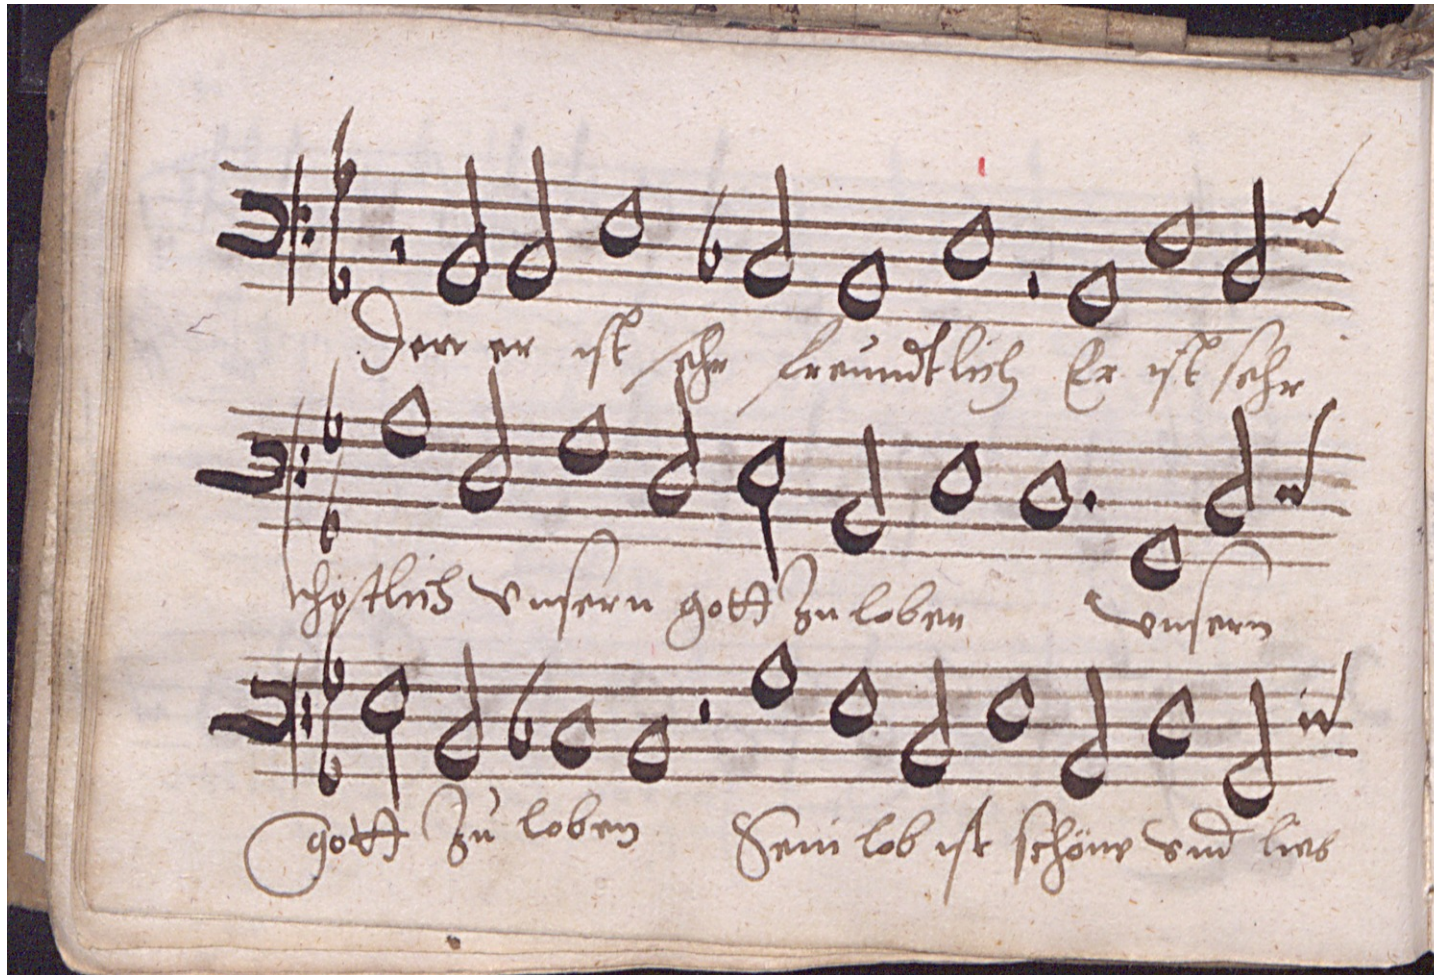 Den er ist sehr freundtlich Er ist sehr
unsern gott zu loben unsern
gott zu loben Sein lob ist schöne und lieb